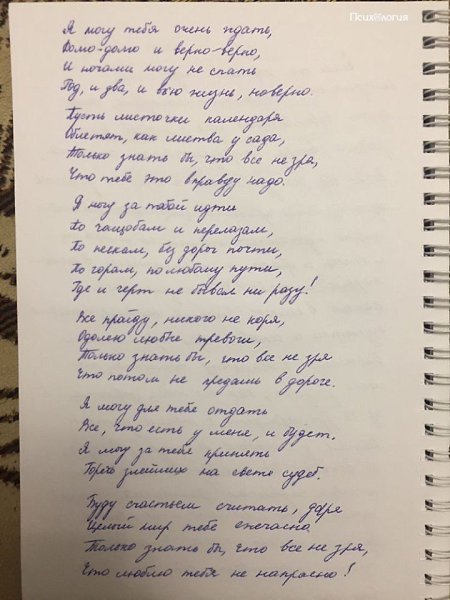 Психология
Я могу тебя очень ждать,
Долго-долго и верно-верно,
И ночами могу не спать
Год, и два, и всю жизнь, наверно.
Пусть листочки календаря
Облетят, как листва у сада,
Только знать бы, что все не зря,
Что тебе это вправду надо.
Я могу за тобой идти
По чащобам и перелазам,
По пескам, без дорог почти,
По горам, по любому пути,
Где и черт не бывал ни разу!
Все пройду, никого не коря,
Одолею любые тревоги,
Только знать бы, что все не зря
Что потом не предашь в дороге.
Я могу для тебя отдать
Все, что есть у меня, и будет.
Я могу за тебя принять
Горечь злейших на свете судеб.
Буду счастьем считать, даря
Целый мир тебе ежечасно
Только знать бы, что все не зря,
Что люблю тебя не напрасно!